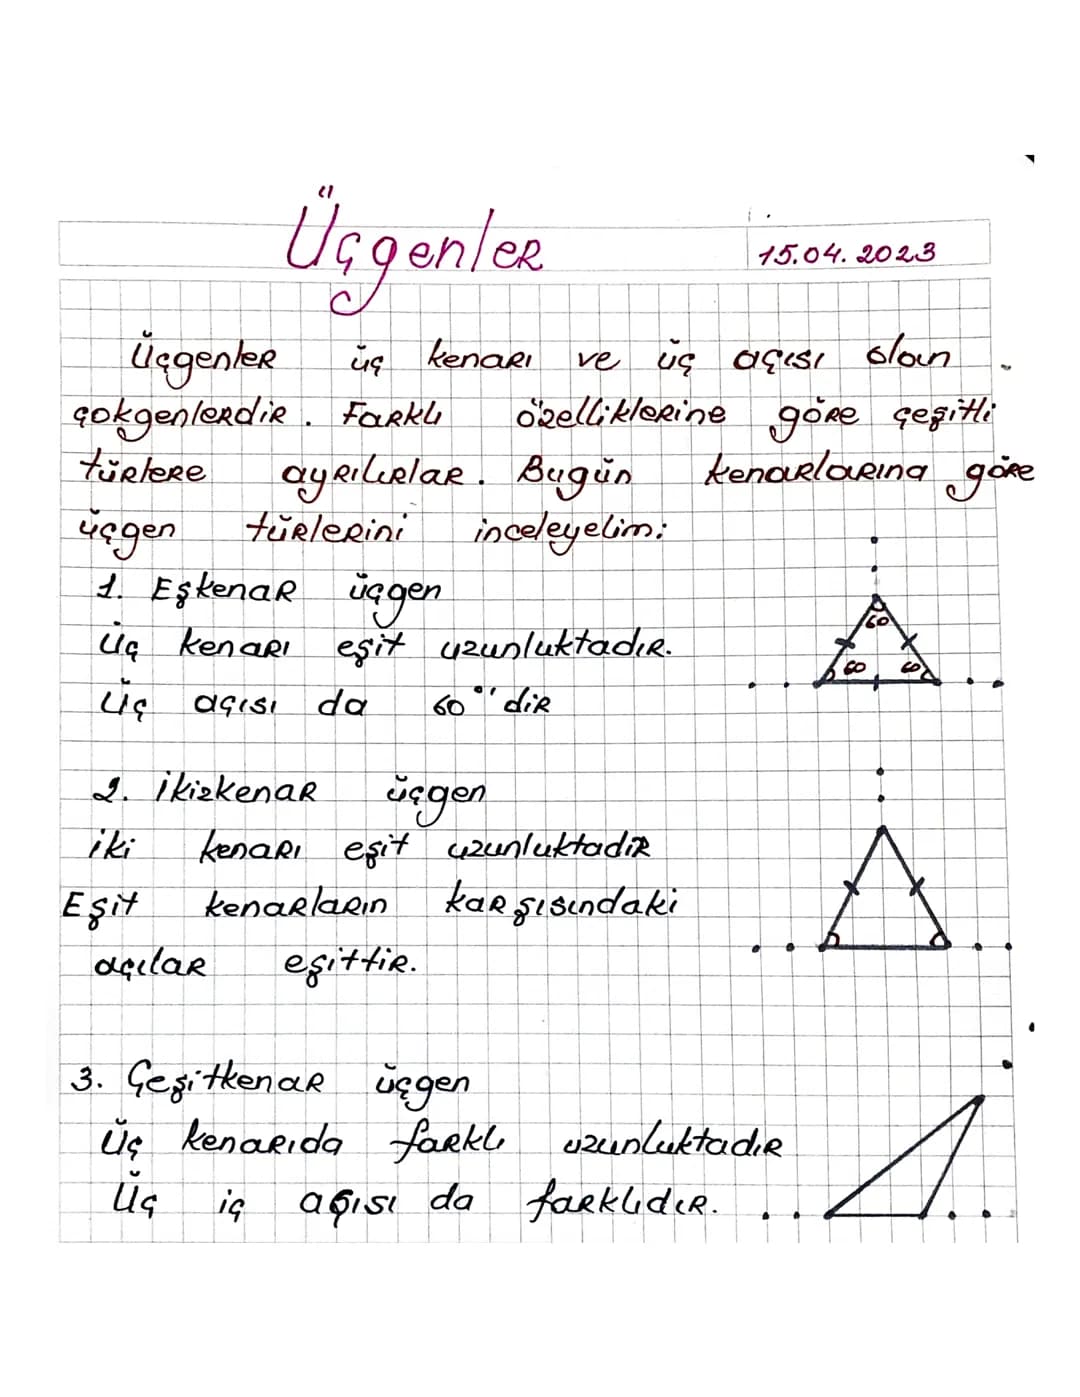 Üçgenler
15.04.2023
Üçgenler üç kenarı ve üç açısı olan
çokgenlerdir. Farklı özelliklerine göre çeşitli
türlere ayrılırlar. Bugün kenarlarına göre
üçgen türlerini inceleyelim:
1. Eşkenar üçgen
Üç kenarı eşit uzunluktadır.
Üç açısı da 60°'dir
60
60 60
2. İkizkenar üçgen
iki kenarı eşit uzunluktadır
Eşit kenarların karşısındaki
açılar eşittir.
3. Çeşitkenar üçgen
Üç kenarıda farklı uzunluktadır
Üç iç açısı da farklıdır.